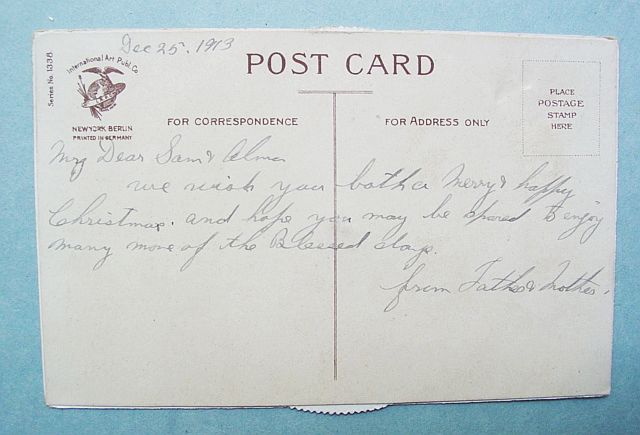 Dec 25, 1913
Series No. 1338
International Art Publ. Co.
NEW YORK BERLIN
PRINTED IN GERMANY
POST CARD
PLACE
POSTAGE
STAMP
HERE
FOR CORRESPONDENCE
FOR ADDRESS ONLY
My Dear Sam & Alma
we wish you both a Merry & happy
Christmas. and hope you may be spared to enjoy
many more of the Blessed days.
from Father & Mother.